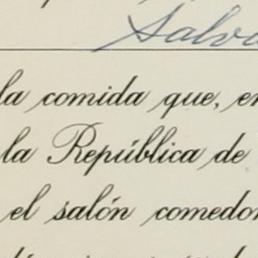 Salva
la comida que, en
la República de
el salón comedor